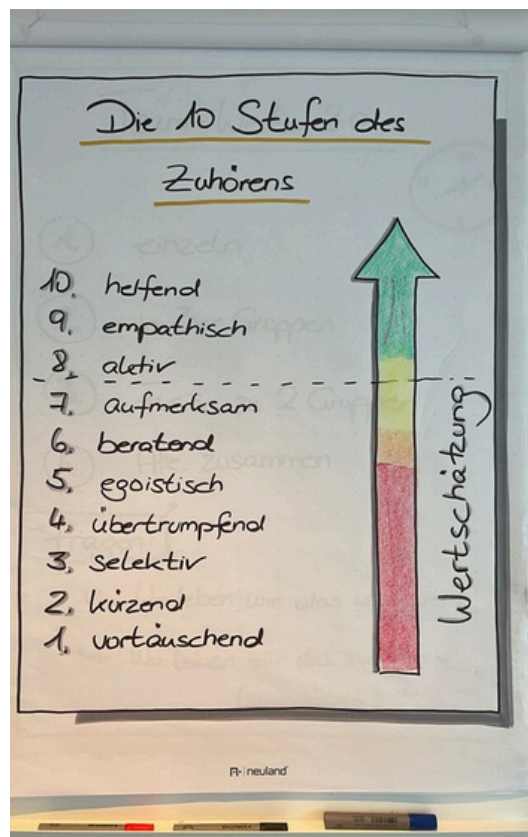 Die 10 Stufen des
Zuhörens
10. helfend
9. empathisch
8. aktiv
7. aufmerksam
6. beratend
5. egoistisch
4. übertrumpfend
3. selektiv
2. kürzend
1. vortäuschend
Wertschätzung
neuland